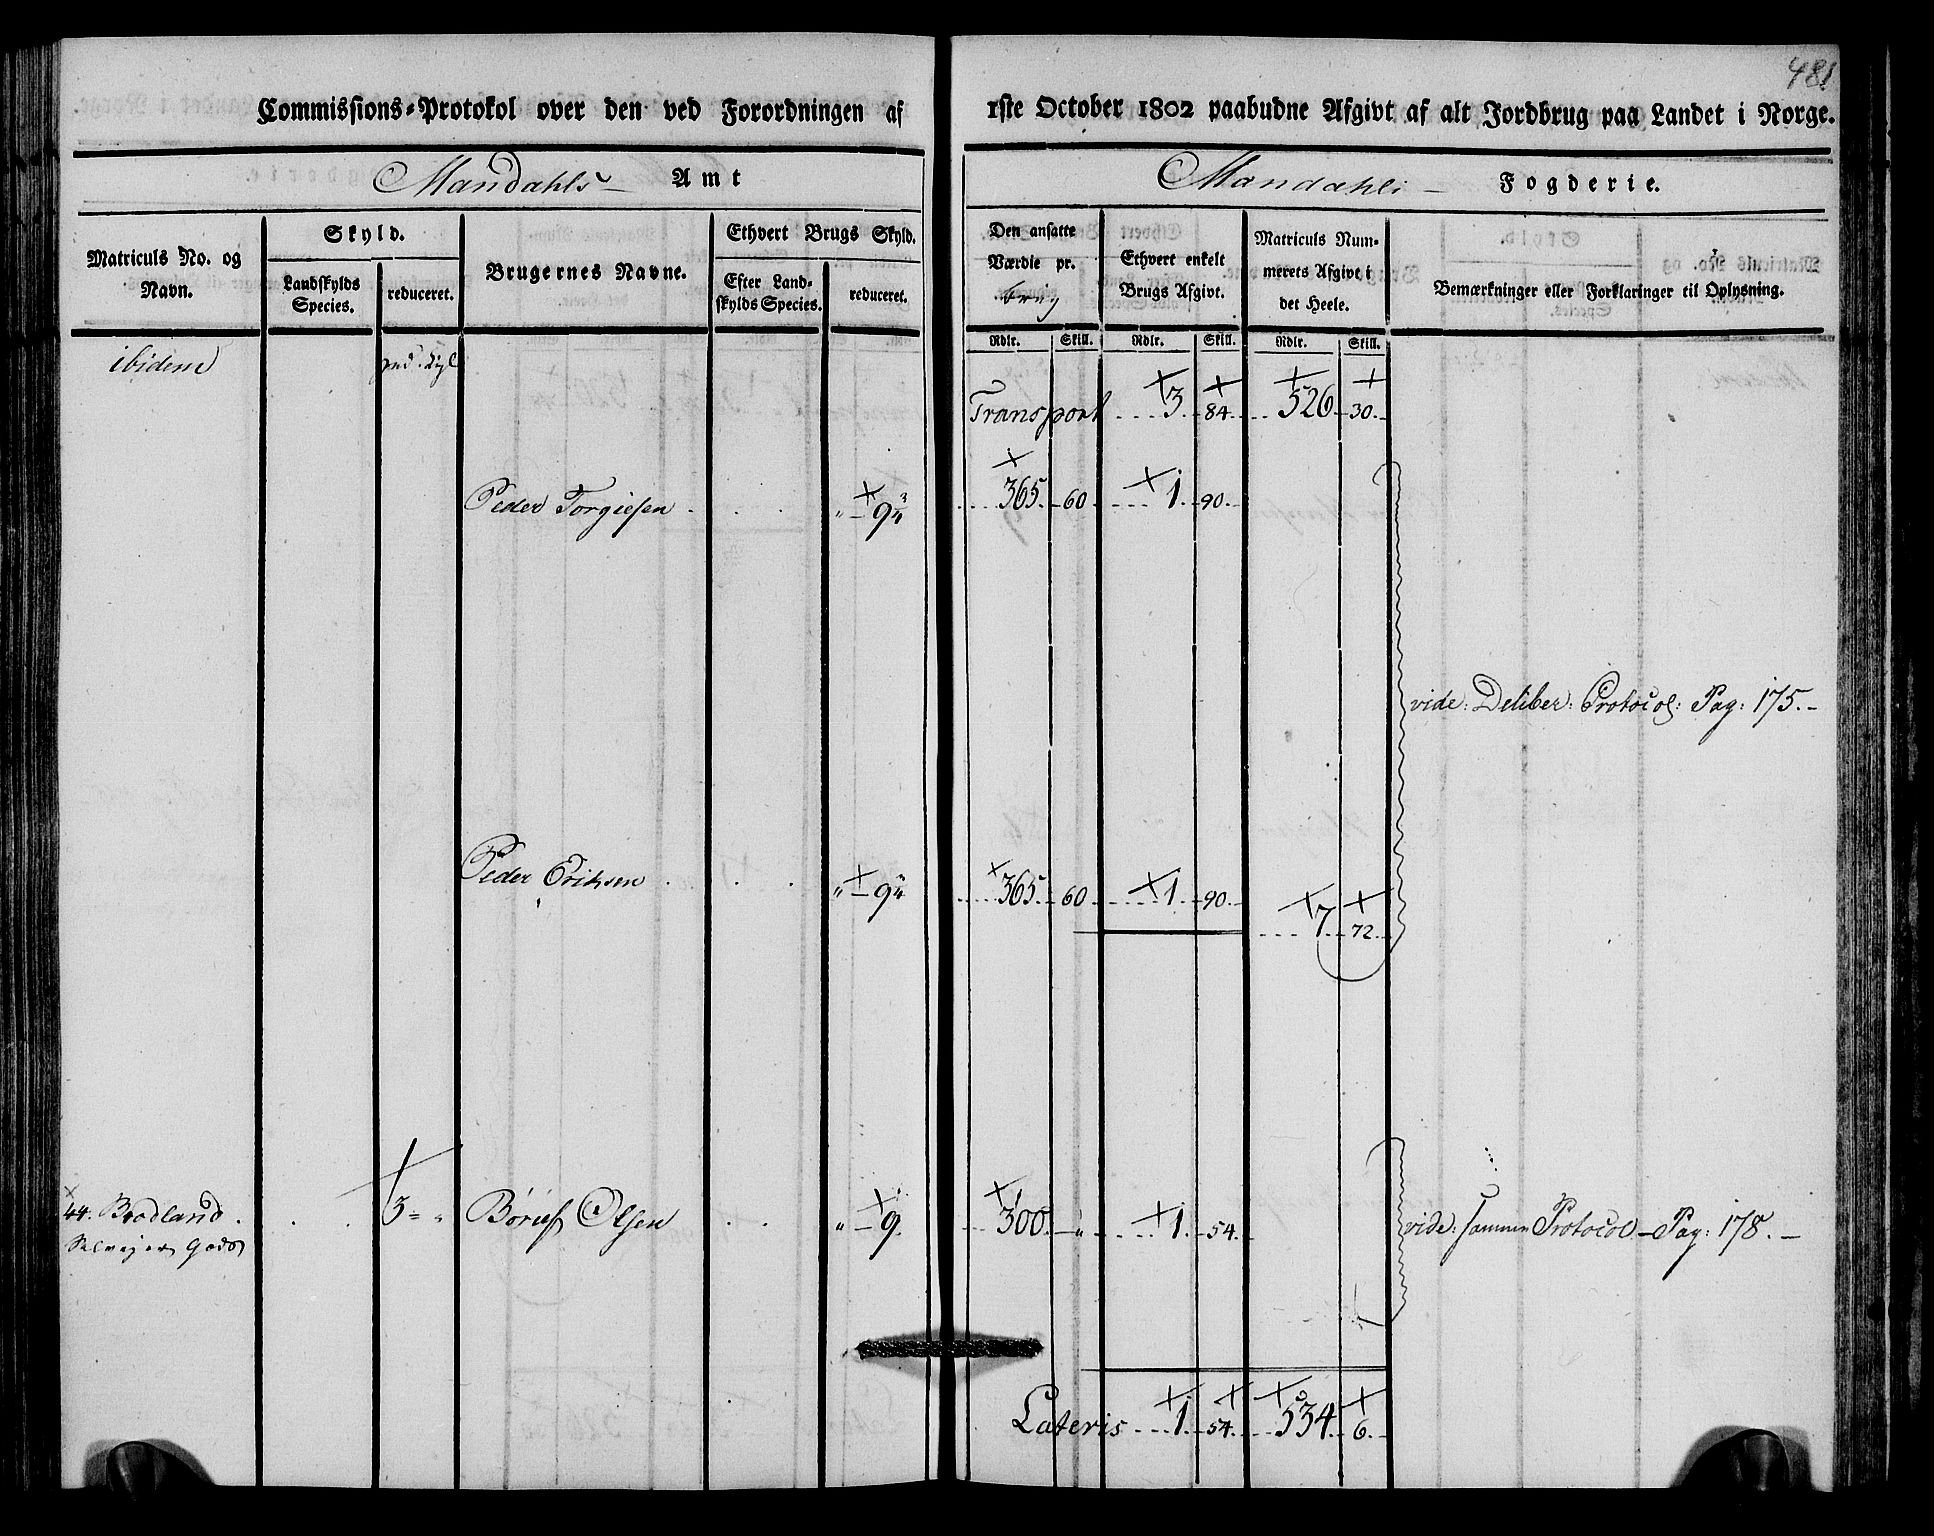 481
Commissions-Protokol over den ved Forordningen af 1ste October 1802 paabudne Afgivt af alt Jordbrug paa Landet i Norge.
Mandahls Amt
Mandahls Fogderie.
Matriculs No. og Navn.
Skyld.
Landskylds Species.
reduceret.
Brugernes Navne.
Ethvert Brugs Skyld.
Efter Landskylds Species.
reduceret.
Den ansatte Værdie pr.
Ethvert enkelt Brugs Afgivt.
Matriculs Nummerets Afgivt i det Heele.
Bemærkninger eller Forklaringer til Oplysning.
Rdlr. Skill. Rdlr. Skill. Rdlr. Skill.
ibidem
Transport 3. 84. 526 30.
Peder Torgiesen 9 365. 60 1. 90.
vide: Deliber: Protocol: Pag: 175.
Peder Eriksen 9 365. 60 1. 90.
7. 72.
44. Brodland. 3 Børief Olsen 9. 300. " 1. 54. vide: samme Protocol Pag: 178.
Gods
Lateris 1. 54. 534. 6.